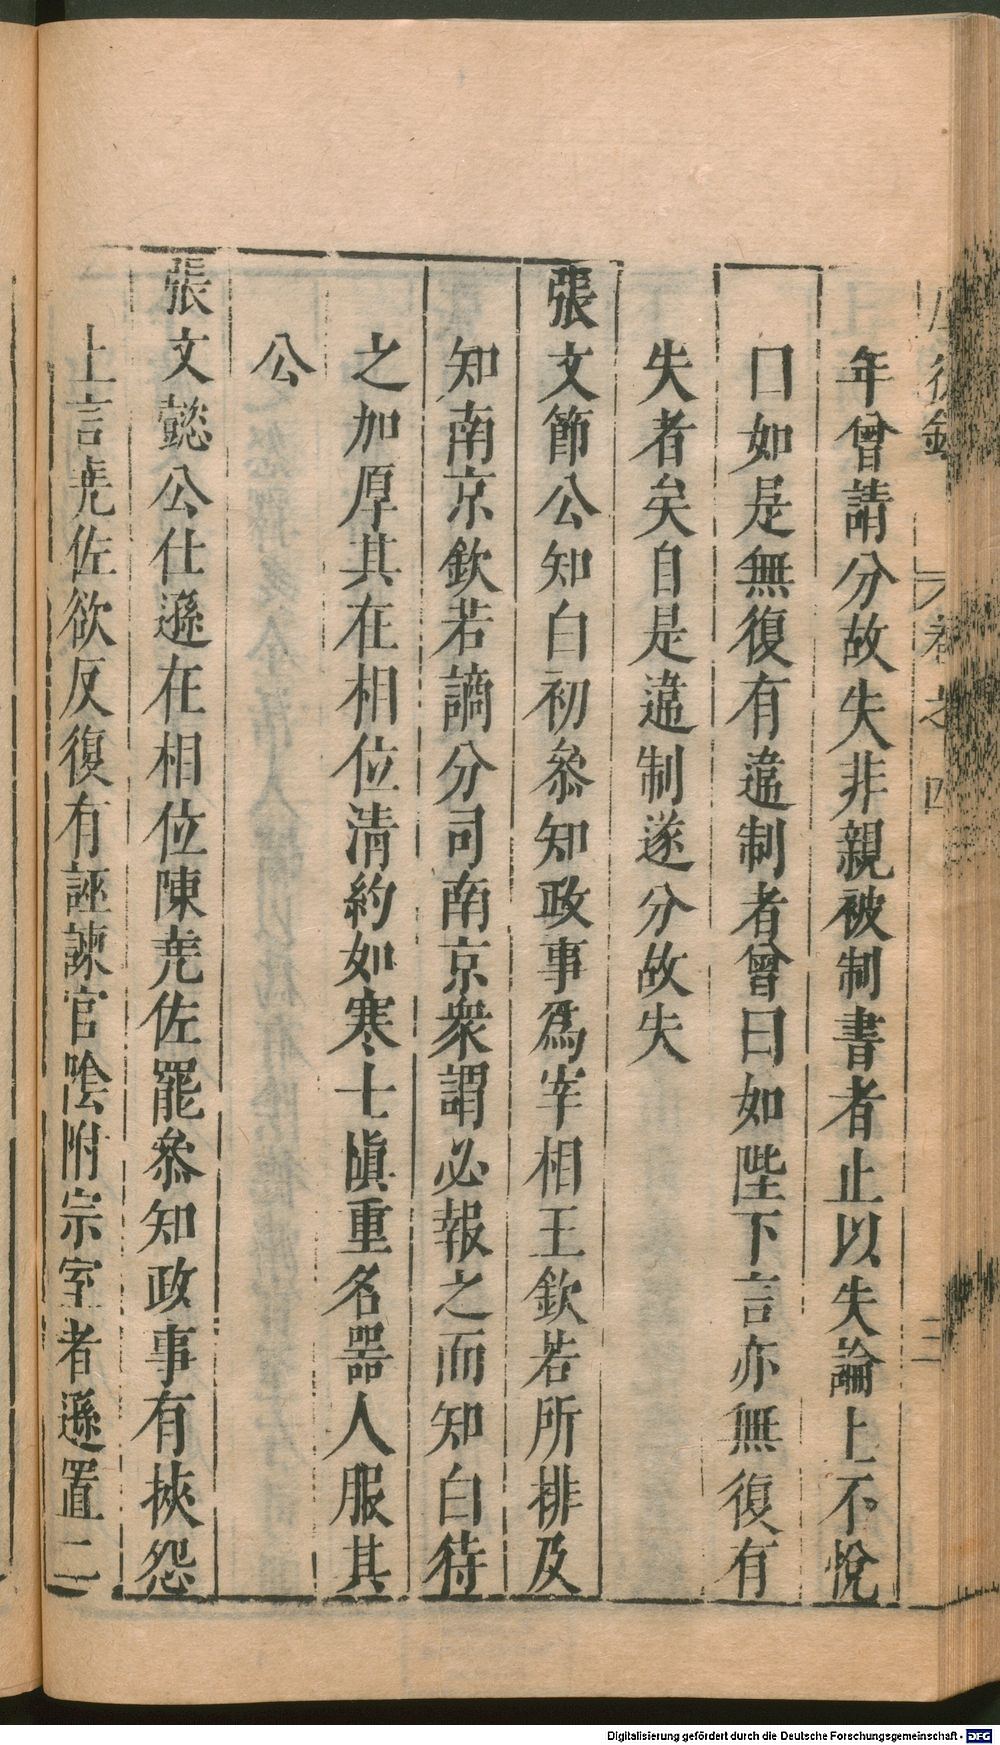 後錄 卷之四 三
年曾請分故失非親被制書者止以失論上不悅
曰如是無復有違制者曾曰如陛下言亦無復有
失者矣自是違制遂分故失
張文節公知白初叅知政事爲宰相王欽若所排及
知南京欽若謫分司南京衆謂必報之而知白待
之加厚其在相位清約如寒士慎重名器人服其
公
張文懿公仕遜在相位陳尭佐罷叅知政事有挾怨
上言尭佐欲反復有誣諫官陰附宗室者遜置二
Digitalisierung gefördert durch die Deutsche Forschungsgemeinschaft - DFG